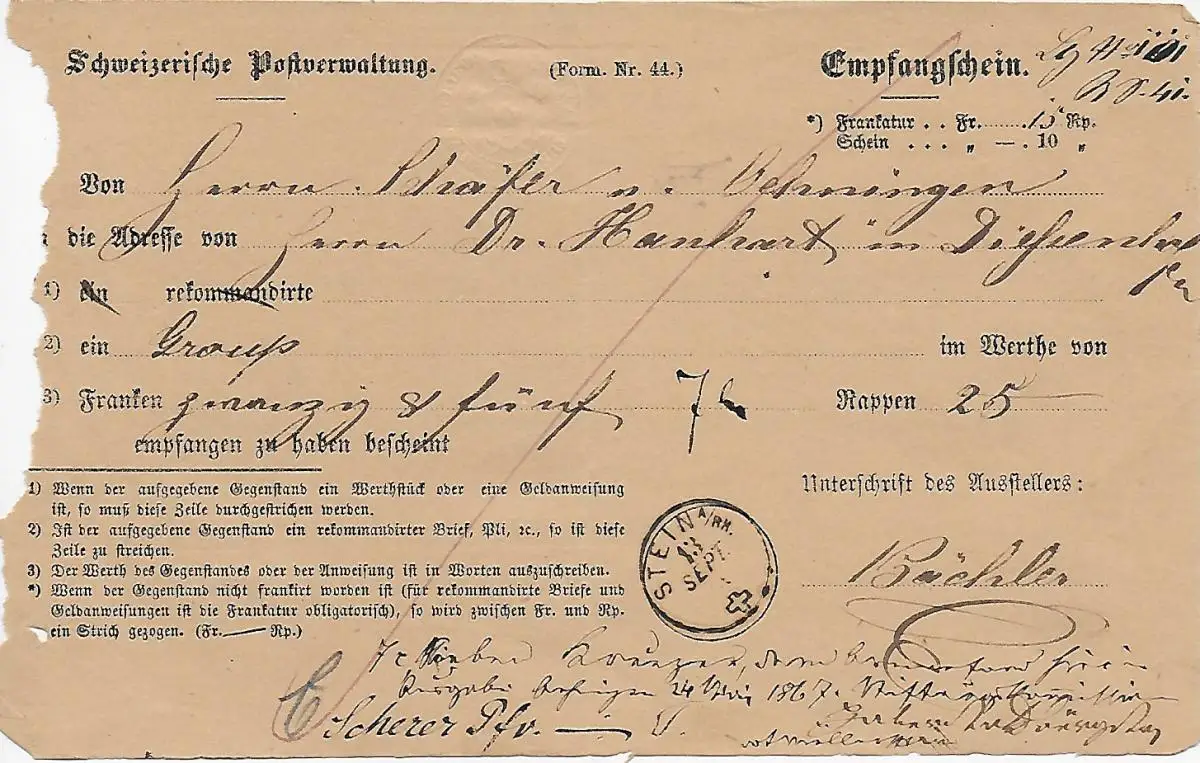 Schweizerische Postverwaltung. (Form. Nr. 44.) Empfangschein.
*) Frankatur . . Fr. 15 Rp.
Schein . . . „ — . 10 „
Von Herrn Schäfer v. Oehningen
die Adresse von Herrn Dr. Hanhart in Dießenho
fen
1) ein rekommandirte
2) ein Group im Werthe von
3) Franken zwanzig & fünf Rappen 25
empfangen zu haben bescheint
1) Wenn der aufgegebene Gegenstand ein Werthstück oder eine Geldanweisung
ist, so muß diese Zeile durchgestrichen werden.
2) Ist der aufgegebene Gegenstand ein rekommandirter Brief, Pli, ꝛc., so ist diese
Zeile zu streichen.
3) Der Werth des Gegenstandes oder der Anweisung ist in Worten auszuschreiben.
*) Wenn der Gegenstand nicht frankirt worden ist (für rekommandirte Briefe und
Geldanweisungen ist die Frankatur obligatorisch), so wird zwischen Fr. und Rp.
ein Strich gezogen. (Fr.— Rp.)
Unterschrift des Ausstellers:
Bächler
STEIN A/RH.
13
SEPT.
7 Sieben Kreuzer,
24 Mai 1867.
Scherer Pfr.